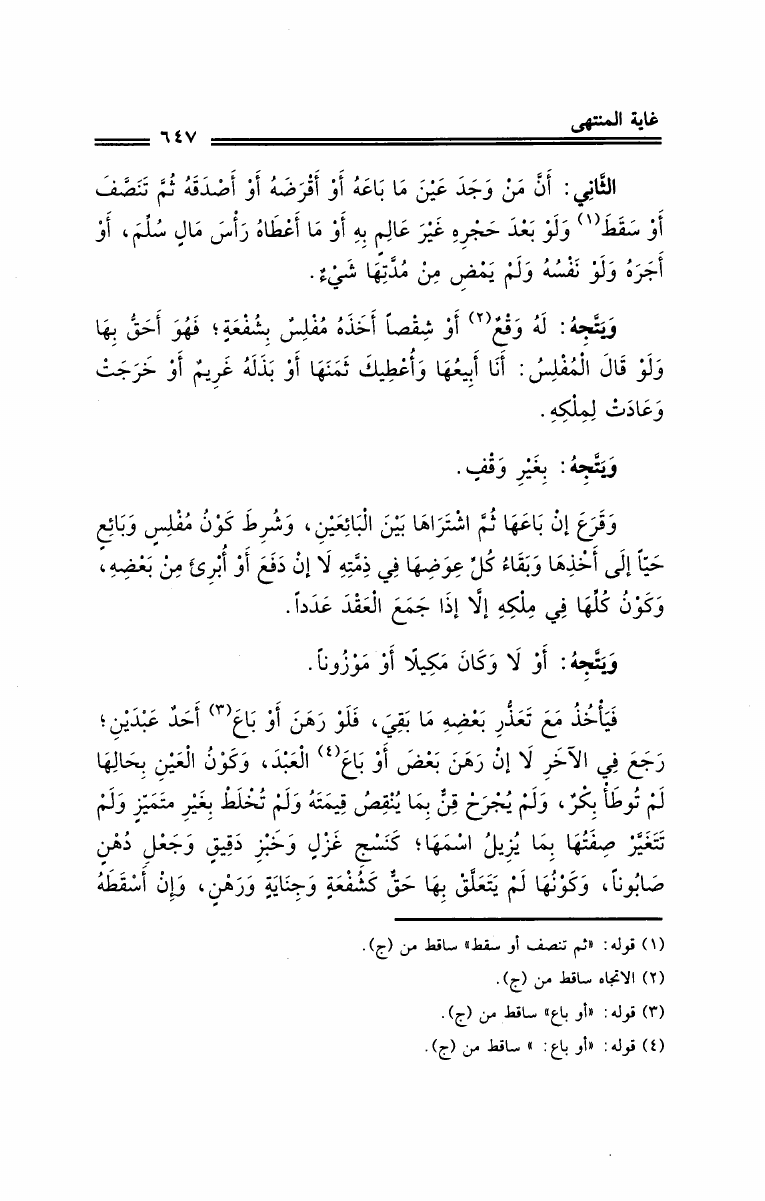 غاية المنتهى
٦٤٧
الثَّانِي: أَنَّ مَنْ وَجَدَ عَيْنَ مَا بَاعَهُ أَوْ أَقْرَضَهُ أَوْ أَصْدَقَهُ ثُمَّ تَنَصَّفَ
أَوْ سَقَطَ(١) وَلَوْ بَعْدَ حَجْرِهِ غَيْرَ عَالِمٍ بِهِ أَوْ مَا أَعْطَاهُ رَأْسَ مَالٍ سُلِّمَ، أَوْ
أَجَرَهُ وَلَوْ نَفْسُهُ وَلَمْ يَمْضِ مِنْ مُدَّتِهَا شَيْءٌ.
وَيَتَّجِهُ: لَهُ وَقْعٌ(٢) أَوْ شِقْصاً أَخَذَهُ مُفْلِسٌ بِشُفْعَةٍ؛ فَهُوَ أَحَقُّ بِهَا
وَلَوْ قَالَ الْمُفْلِسُ: أَنَا أَبِيعُهَا وَأُعْطِيكَ ثَمَنَهَا أَوْ بَذَلَهُ غَرِيمٌ أَوْ خَرَجَتْ
وَعَادَتْ لِمِلْكِهِ.
وَيَتَّجِهُ: بِغَيْرِ وَقْفٍ.
وَقَرَعَ إِنْ بَاعَهَا ثُمَّ اشْتَرَاهَا بَيْنَ الْبَائِعَيْنِ، وَشُرِطَ كَوْنُ مُفْلِسٍ وَبَائِعٍ
حَيّاً إِلَى أَخْذِهَا وَبَقَاءُ كُلِّ عِوَضِهَا فِي ذِمَّتِهِ لَا إِنْ دَفَعَ أَوْ أُبْرِئَ مِنْ بَعْضِهِ،
وَكَوْنُ كُلِّهَا فِي مِلْكِهِ إِلَّا إِذَا جَمَعَ الْعَقْدَ عَدَداً.
وَيَتَّجِهُ: أَوْ لَا وَكَانَ مَكِيلًا أَوْ مَوْزُوناً.
فَيَأْخُذُ مَعَ تَعَذُّرِ بَعْضِهِ مَا بَقِيَ، فَلَوْ رَهَنَ أَوْ بَاعَ(٣) أَحَدُ عَبْدَيْنِ؛
رَجَعَ فِي الآخَرِ لَا إِنْ رَهَنَ بَعْضَ أَوْ بَاعَ(٤) الْعَبْدَ، وَكَوْنُ الْعَيْنِ بِحَالِهَا
لَمْ تُوطَأْ بِكْرٌ، وَلَمْ يُجْرَحْ قِنٌّ بِمَا يُنْقِصُ قِيمَتَهُ وَلَمْ تُخْلَطْ بِغَيْرِ مُتَمَيِّزٍ وَلَمْ
تَتَغَيَّرْ صِفَتُهَا بِمَا يُزِيلُ اسْمَهَا؛ كَنَسْجِ غَزْلٍ وَخَبْزِ دَقِيقٍ وَجَعْلِ دُهْنٍ
صَابُوناً، وَكَوْنُهَا لَمْ يَتَعَلَّقْ بِهَا حَقٌّ كَشُفْعَةٍ وَجِنَايَةٍ وَرَهْنٍ، وَإِنْ أَسْقَطَهُ
(١) قوله: «ثم تنصف أو سقط» ساقط من (ج).
(٢) الاتجاه ساقط من (ج).
(٣) قوله: «أو باع» ساقط من (ج).
(٤) قوله: «أو باع: » ساقط من (ج).